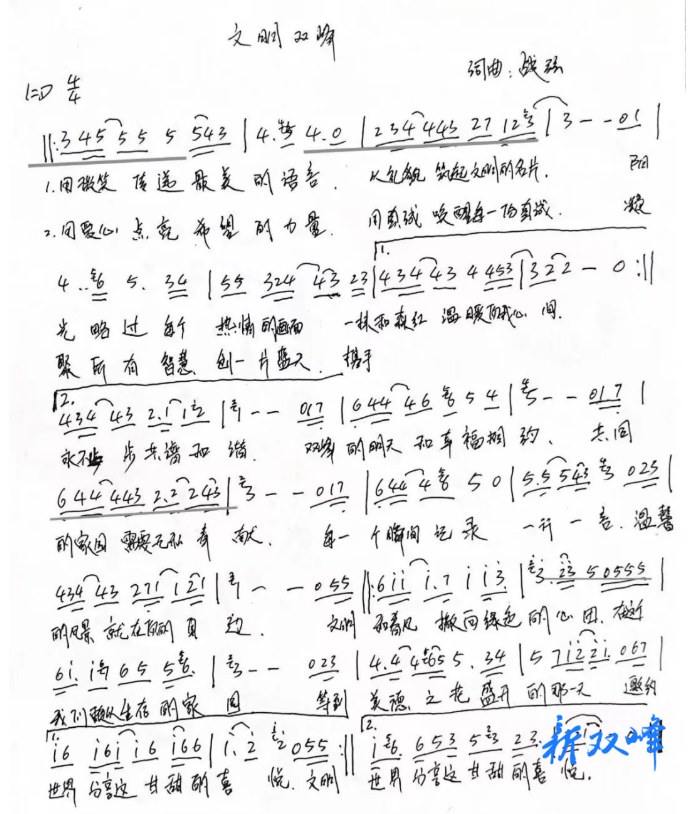 文明双峰
词曲：战孙
1=D 4/4
‖: 3 4 5 5 5 5 5 4 3 | 4. 4 5 4. 0 | 2 3 4 4 4 3 2 7 1 2 3 | 3 - - 0 1 |
1.用微笑 传递 最美的语言. 从礼貌 筑起文明的名片. 阳
2.用爱心 点亮 希望的力量. 用真诚 唤醒每一份真诚. 凝
4. 6 5. 3 4 | 5 5 3 2 4 4 3 2 3 | 1. 4 3 4 4 3 4 4 5 3 | 3 2 2 - 0 :‖
光 略过 每个 热情的画面 一抹和森红 温暖 心间.
聚 所有 智慧 创一片蓝天. 携手
2. 4 3 4 4 3 2. 1 1 2 | 1 - - 0 1 7 | 6 4 4 4 6 6 5 4 | 5 - - 0 1 7 |
永不 步 共谱和谐. 双峰的明天 和幸福拥约. 共同
6 4 4 4 4 3 2. 2 2 4 3 | 3 - - 0 1 7 | 6 4 4 4 6 5 0 | 5. 5 5 4 3 3 0 2 5 |
的家园 需要无私奉献. 每一个瞬间记录 一言. 温馨
4 3 4 4 3 2 7 1 1 2 1 | 1 - - 0 5 5 ‖: 6 i i i. 7 i i 3 | 3. 2 3 5 0 5 5 5 |
的风景 就在 身边. 文明 和春风 绿色的心田. 在这
6 i. i 6 5 5 6. | 3 - - 0 2 3 | 4. 4 4 6 5 5. 3 4 | 5 7 i 2 2 i. 0 6 7 |
我们 生存的家园 等到 美德之花盛开的那一天 邀约
1. i 6 i 6 i i 6 i 6 6 | i. 2 2 0 5 5 :‖ 2. i 6. 6 5 3 5 3 2 3.
世界 分享这甘甜的喜悦. 文明 世界 分享这甘甜的喜悦.
新双峰